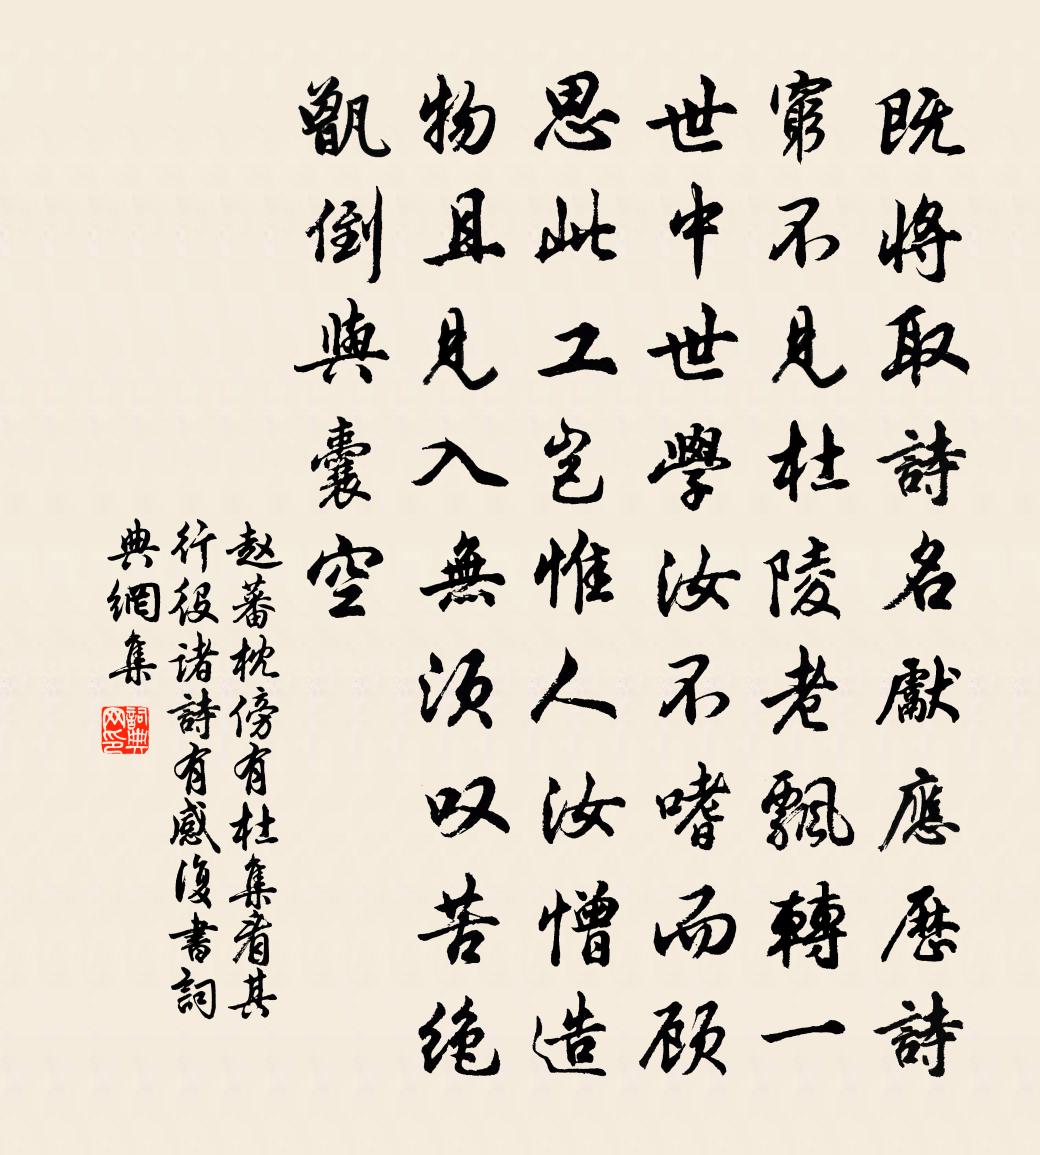 既將取詩名獻應歷詩
窮不見杜陵老飄轉一
世中世學汝不嗜而顾
思此工豈惟人汝憎造
物且見入無須叹苦绝
甑倒與囊空
赵蕃枕傍有杜集看其
行役诸詩有感復書詞
典網集
詞典网印